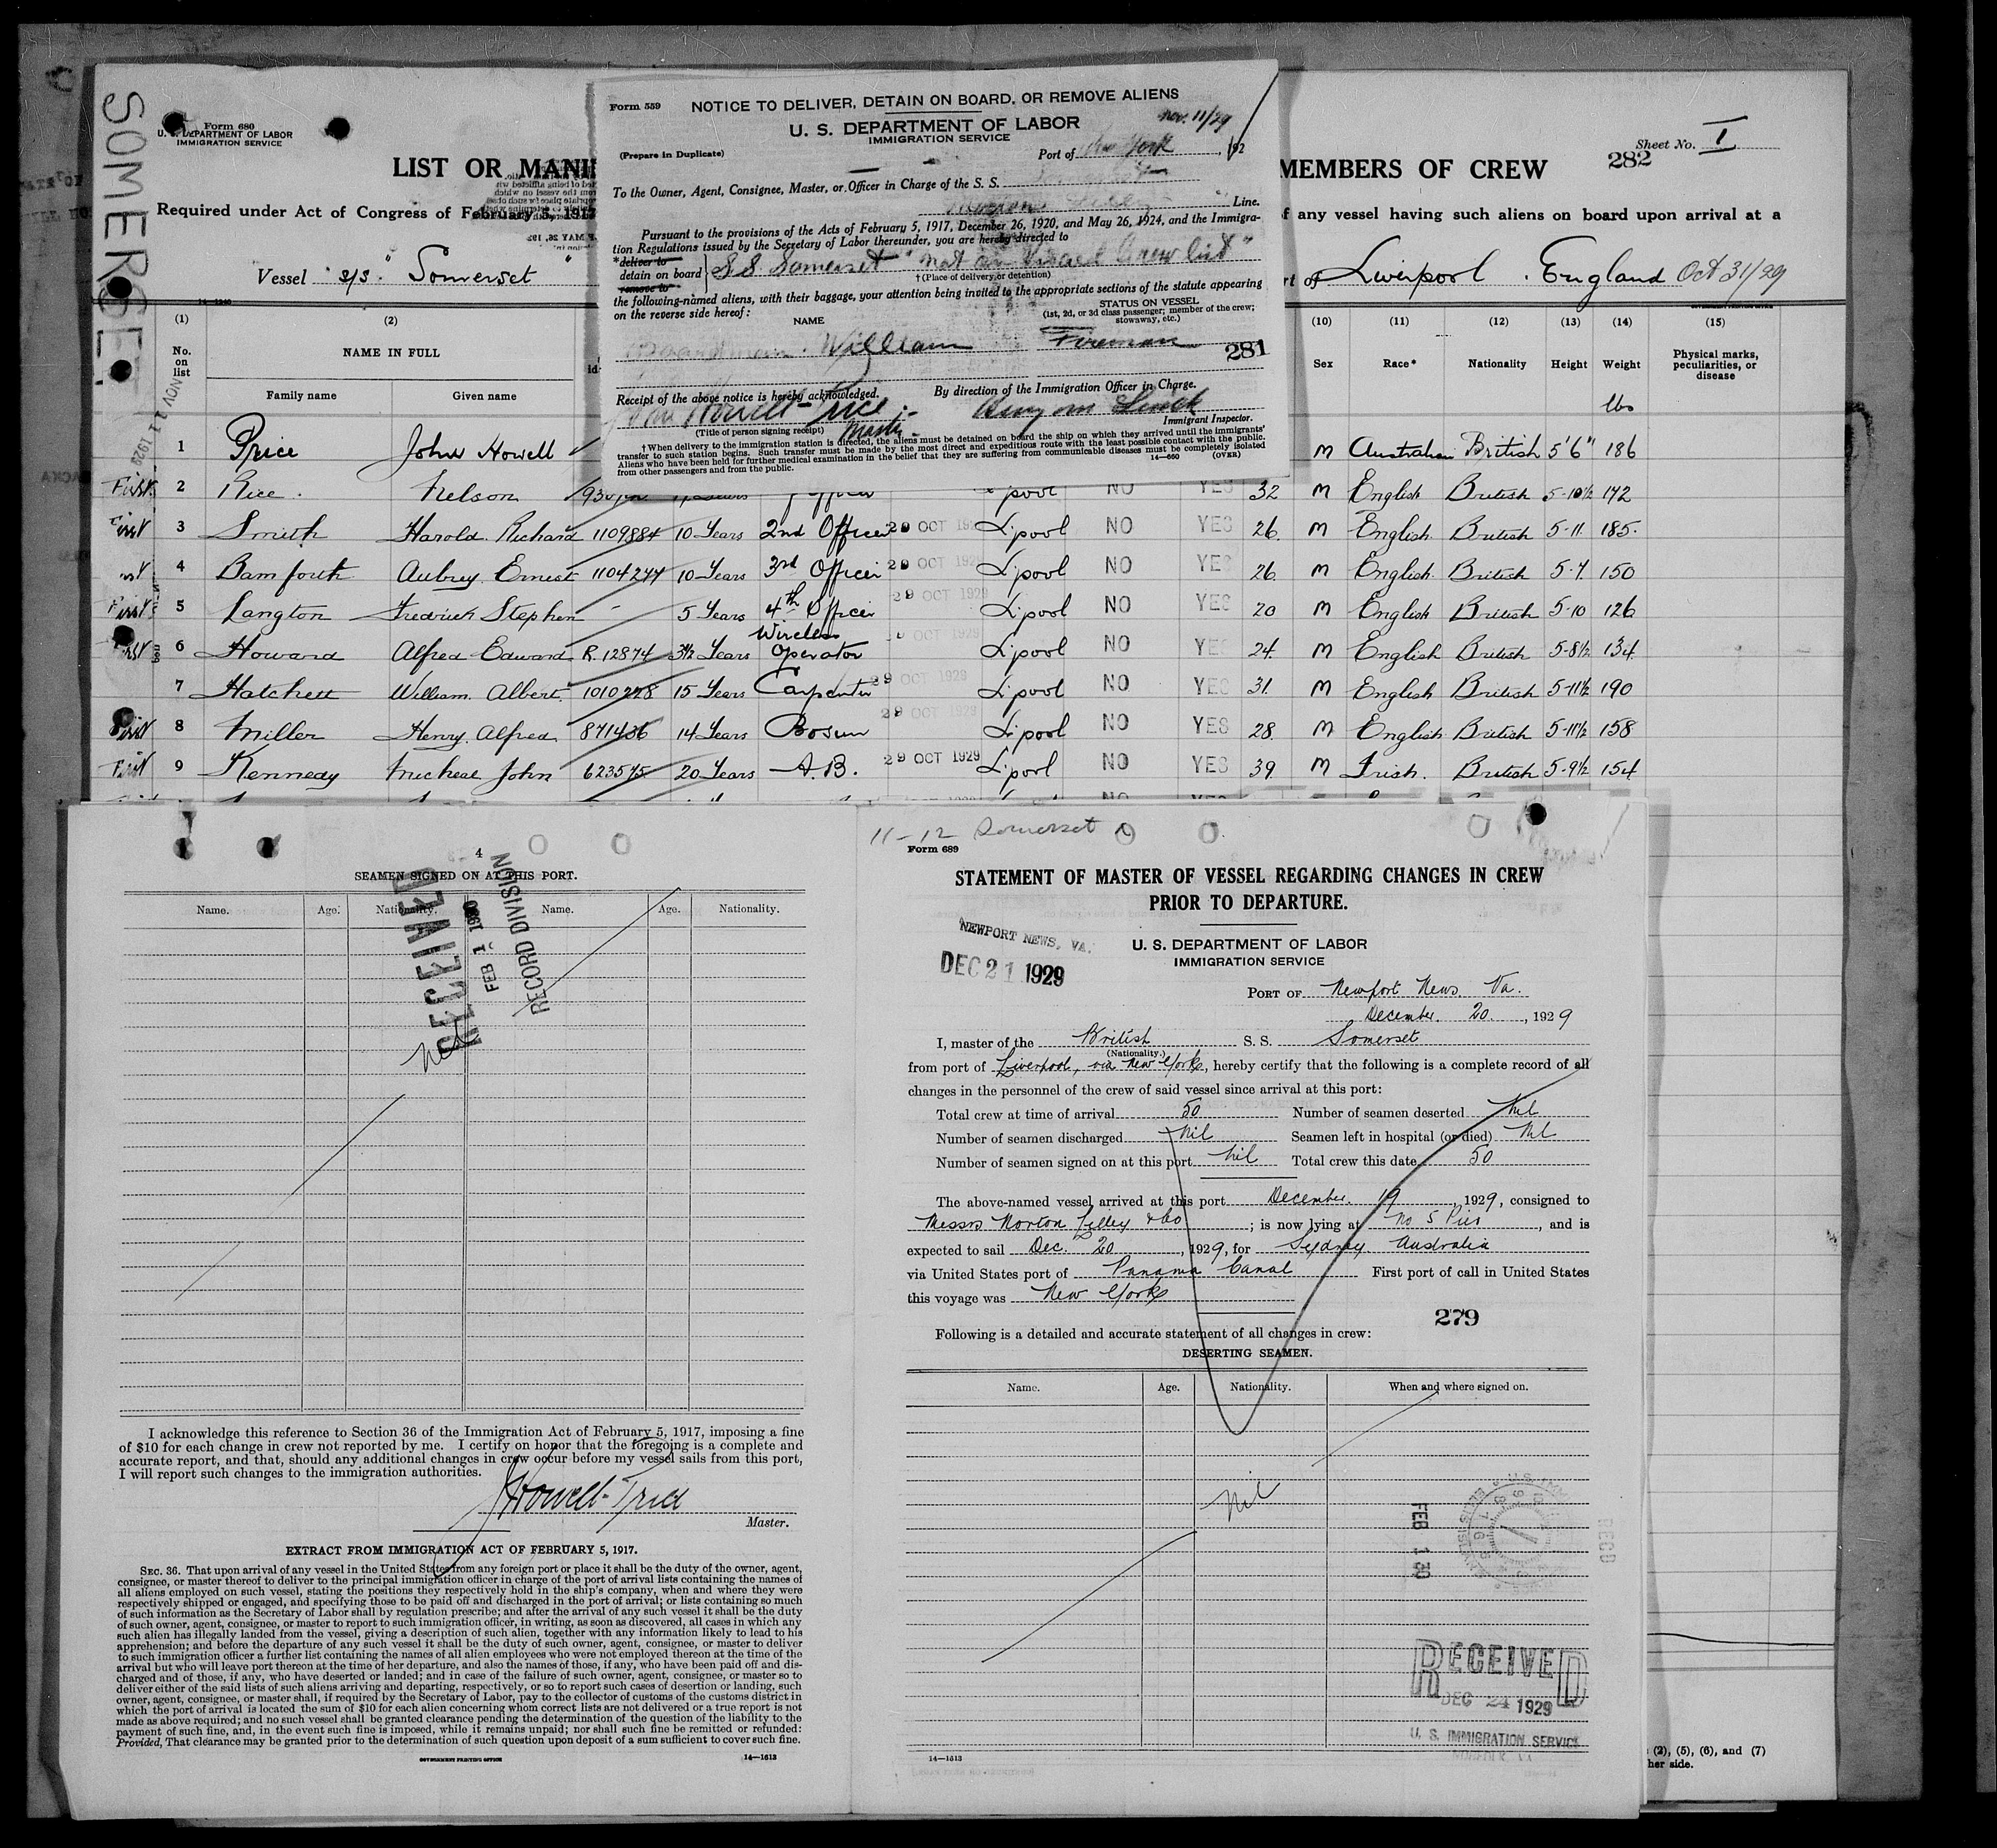 SOMERSET
Form 680
U. S. DEPARTMENT OF LABOR
IMMIGRATION SERVICE
LIST OR MANI
MEMBERS OF CREW
282
Sheet No. I
Required under Act of Congress of February 5, 1917
f any vessel having such aliens on board upon arrival at a
Vessel S/S "Somerset"
rt of Liverpool . England Oct 31/29
14-1240
NOV 11 1929
(1) (2) (10) (11) (12) (13) (14) (15)
No. on list
NAME IN FULL
Family name Given name
Sex Race* Nationality Height Weight Physical marks, peculiarities, or disease
lbs
1 Price John Howell M Australian British 5'6" 186
First 2 Rice . Nelson 32 M English British 5-10½ 172
First 3 Smith Harold Richard 1109884 10 Years 2nd Officer 29 OCT 192 L'pool NO YES 26 M English British 5-11 185
4 Bamforth Aubrey Ernest 1104277 10 Years 3rd Officer 29 OCT 192 L'pool NO YES 26 M English British 5-7 150
First 5 Langton Fredrick Stephen - 5 Years 4th Officer 29 OCT 1929 L'pool NO YES 20 M English British 5-10 126
First 6 Howard Alfred Edward R.12874 3½ Years Wireless Operator OCT 1929 L'pool NO YES 24 M English British 5-8½ 134
7 Hatchett William Albert 1010228 15 Years Carpenter 29 OCT 1929 L'pool NO YES 31 M English British 5-11½ 190
First 8 Miller Henry Alfred 871456 14 Years Bosun 29 OCT 1929 L'pool NO YES 28 M English British 5-11½ 158
First 9 Kennedy Micheal John 623575 20 Years A.B. 29 OCT 1929 L'pool NO YES 39 M Irish British 5-9½ 154
Form 559
NOTICE TO DELIVER, DETAIN ON BOARD, OR REMOVE ALIENS
U. S. DEPARTMENT OF LABOR
IMMIGRATION SERVICE
Nov. 11/29
(Prepare in Duplicate)
Port of New York, 192
To the Owner, Agent, Consignee, Master, or Officer in Charge of the S. S.
Line.
Pursuant to the provisions of the Acts of February 5, 1917, December 26, 1920, and May 26, 1924, and the Immigra-
tion Regulations issued by the Secretary of Labor thereunder, you are hereby directed to
*deliver to
detain on board S.S. Somerset "not on Visaed Crew list"
remove to
†(Place of delivery or detention)
the following-named aliens, with their baggage, your attention being invited to the appropriate sections of the statute appearing
on the reverse side hereof:
NAME
STATUS ON VESSEL
(1st, 2d, or 3d class passenger; member of the crew;
stowaway, etc.)
William Fireman
281
Receipt of the above notice is hereby acknowledged.
By direction of the Immigration Officer in Charge.
John Howell-Price
Immigrant Inspector.
(Title of person signing receipt) Master
†When delivery to the immigration station is directed, the aliens must be detained on board the ship on which they arrived until the immigrants'
transfer to such station begins. Such transfer must be made by the most direct and expeditious route with the least possible contact with the public.
Aliens who have been held for further medical examination in the belief that they are suffering from communicable diseases must be completely isolated
from other passengers and from the public.
14-660 (OVER)
4
SEAMEN SIGNED ON AT THIS PORT.
Name. Age. Nationality. Name. Age. Nationality.
RECEIVED
FEB 1 1930
RECORD DIVISION
Nil
I acknowledge this reference to Section 36 of the Immigration Act of February 5, 1917, imposing a fine
of $10 for each change in crew not reported by me. I certify on honor that the foregoing is a complete and
accurate report, and that, should any additional changes in crew occur before my vessel sails from this port,
I will report such changes to the immigration authorities.
J Howell-Price
Master.
EXTRACT FROM IMMIGRATION ACT OF FEBRUARY 5, 1917.
SEC. 36. That upon arrival of any vessel in the United States from any foreign port or place it shall be the duty of the owner, agent,
consignee, or master thereof to deliver to the principal immigration officer in charge of the port of arrival lists containing the names of
all aliens employed on such vessel, stating the positions they respectively hold in the ship's company, when and where they were
respectively shipped or engaged, and specifying those to be paid off and discharged in the port of arrival; or lists containing so much
of such information as the Secretary of Labor shall by regulation prescribe; and after the arrival of any such vessel it shall be the duty
of such owner, agent, consignee, or master to report to such immigration officer, in writing, as soon as discovered, all cases in which any
such alien has illegally landed from the vessel, giving a description of such alien, together with any information likely to lead to his
apprehension; and before the departure of any such vessel it shall be the duty of such owner, agent, consignee, or master to deliver
to such immigration officer a further list containing the names of all alien employees who were not employed thereon at the time of the
arrival but who will leave port thereon at the time of her departure, and also the names of those, if any, who have been paid off and dis-
charged and of those, if any, who have deserted or landed; and in case of the failure of such owner, agent, consignee, or master so to
deliver either of the said lists of such aliens arriving and departing, respectively, or so to report such cases of desertion or landing, such
owner, agent, consignee, or master shall, if required by the Secretary of Labor, pay to the collector of customs of the customs district in
which the port of arrival is located the sum of $10 for each alien concerning whom correct lists are not delivered or a true report is not
made as above required; and no such vessel shall be granted clearance pending the determination of the question of the liability to the
payment of such fine, and, in the event such fine is imposed, while it remains unpaid; nor shall such fine be remitted or refunded:
Provided, That clearance may be granted prior to the determination of such question upon deposit of a sum sufficient to cover such fine.
GOVERNMENT PRINTING OFFICE 14-1513
11-12 Somerset
Form 689
STATEMENT OF MASTER OF VESSEL REGARDING CHANGES IN CREW
PRIOR TO DEPARTURE.
NEWPORT NEWS, VA.
DEC 21 1929
U. S. DEPARTMENT OF LABOR
IMMIGRATION SERVICE
PORT OF Newport News Va.
December 20, 1929
I, master of the British S. S. Somerset
(Nationality.)
from port of Liverpool, via New York, hereby certify that the following is a complete record of all
changes in the personnel of the crew of said vessel since arrival at this port:
Total crew at time of arrival 50 Number of seamen deserted Nil
Number of seamen discharged Nil Seamen left in hospital (or died) Nil
Number of seamen signed on at this port Nil Total crew this date 50
The above-named vessel arrived at this port December 19, 1929, consigned to
Messrs Norton Lilley & Co; is now lying at No 5 Pier, and is
expected to sail Dec. 20, 1929, for Sydney Australia
via United States port of Panama Canal First port of call in United States
this voyage was New York
279
Following is a detailed and accurate statement of all changes in crew:
DESERTING SEAMEN.
Name. Age. Nationality. When and where signed on.
Nil
FEB 1 30
RECD
RECEIVED
DEC 24 1929
U. S. IMMIGRATION SERVICE
NORFOLK, VA
14-1513
(2), (5), (6), and (7)
her side.